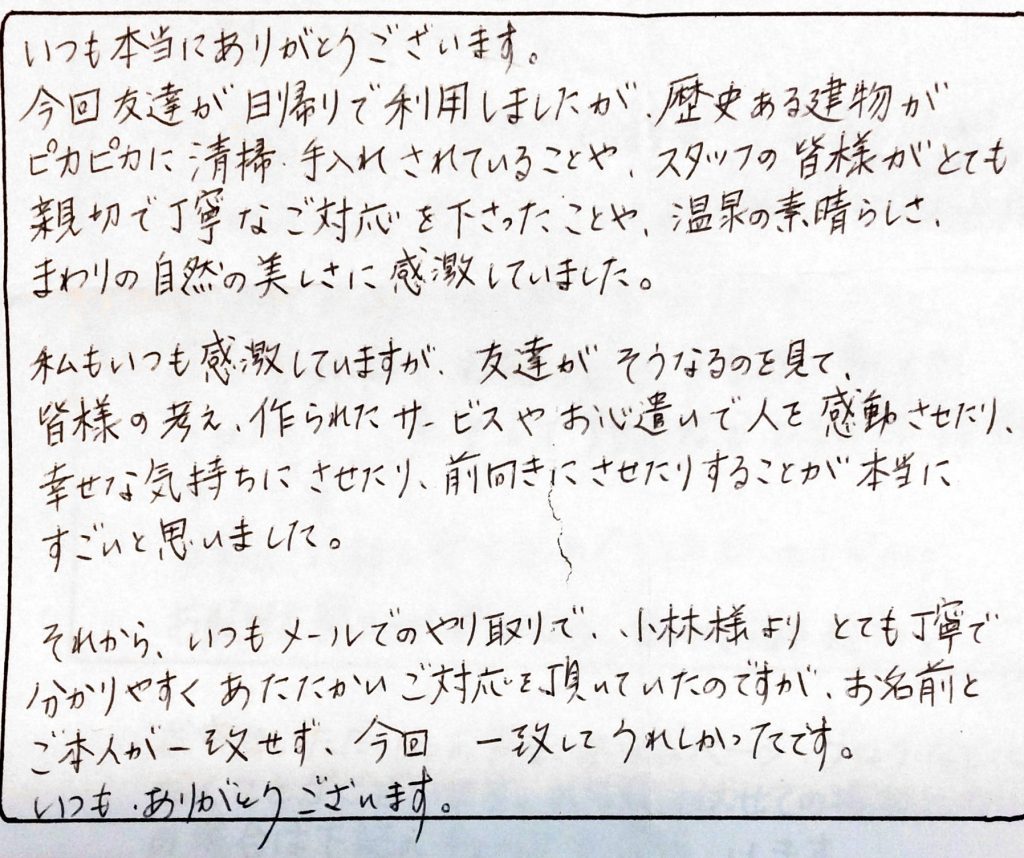 いつも本当にありがとうございます。
今回友達が日帰りで利用しましたが、歴史ある建物が
ピカピカに清掃・手入れされていることや、スタッフの皆様がとても
親切で丁寧なご対応を下さったことや、温泉の素晴らしさ、
まわりの自然の美しさに感激していました。
私もいつも感激していますが、友達がそうなるのを見て、
皆様の考え、作られたサービスやお心遣いで人を感動させたり、
幸せな気持ちにさせたり、前向きにさせたりすることが本当に
すごいと思いました。
それから、いつもメールでのやり取りで、小林様よりとても丁寧で
分かりやすくあたたかいご対応を頂いていたのですが、お名前と
ご本人が一致せず、今回 一致してうれしかったてです。
いつも、ありがとうございます。